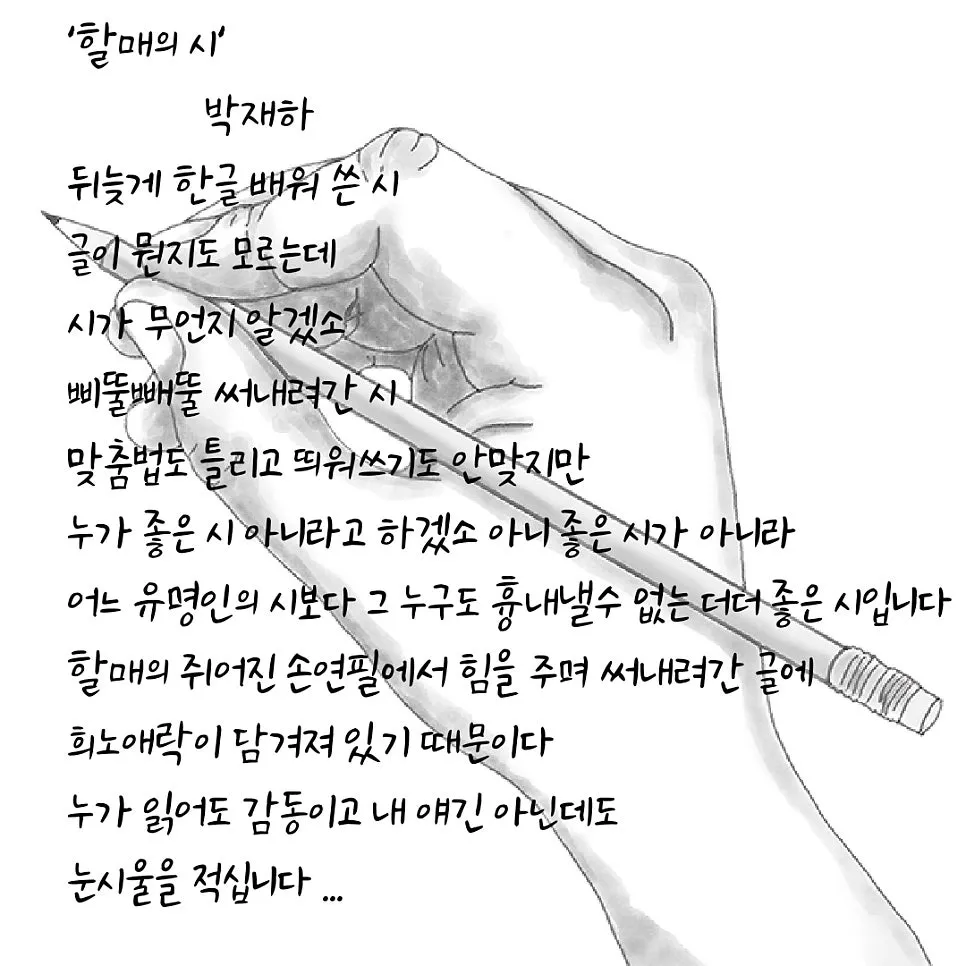 '할매의 시'
박재하
뒤늦게 한글 배워 쓴 시
글이 뭔지도 모르는데
시가 무언지 알겠소
삐뚤빼뚤 써내려간 시
맞춤법도 틀리고 띄워쓰기도 안맞지만
누가 좋은 시 아니라고 하겠소 아니 좋은 시가 아니라
어느 유명인의 시보다 그 누구도 흉내낼수 없는 더더 좋은 시입니다
할매의 쥐어진 손연필에서 힘을 주며 써내려간 글에
희노애락이 담겨져 있기 때문이다
누가 읽어도 감동이고 내 얘긴 아닌데도
눈시울을 적십니다 ...